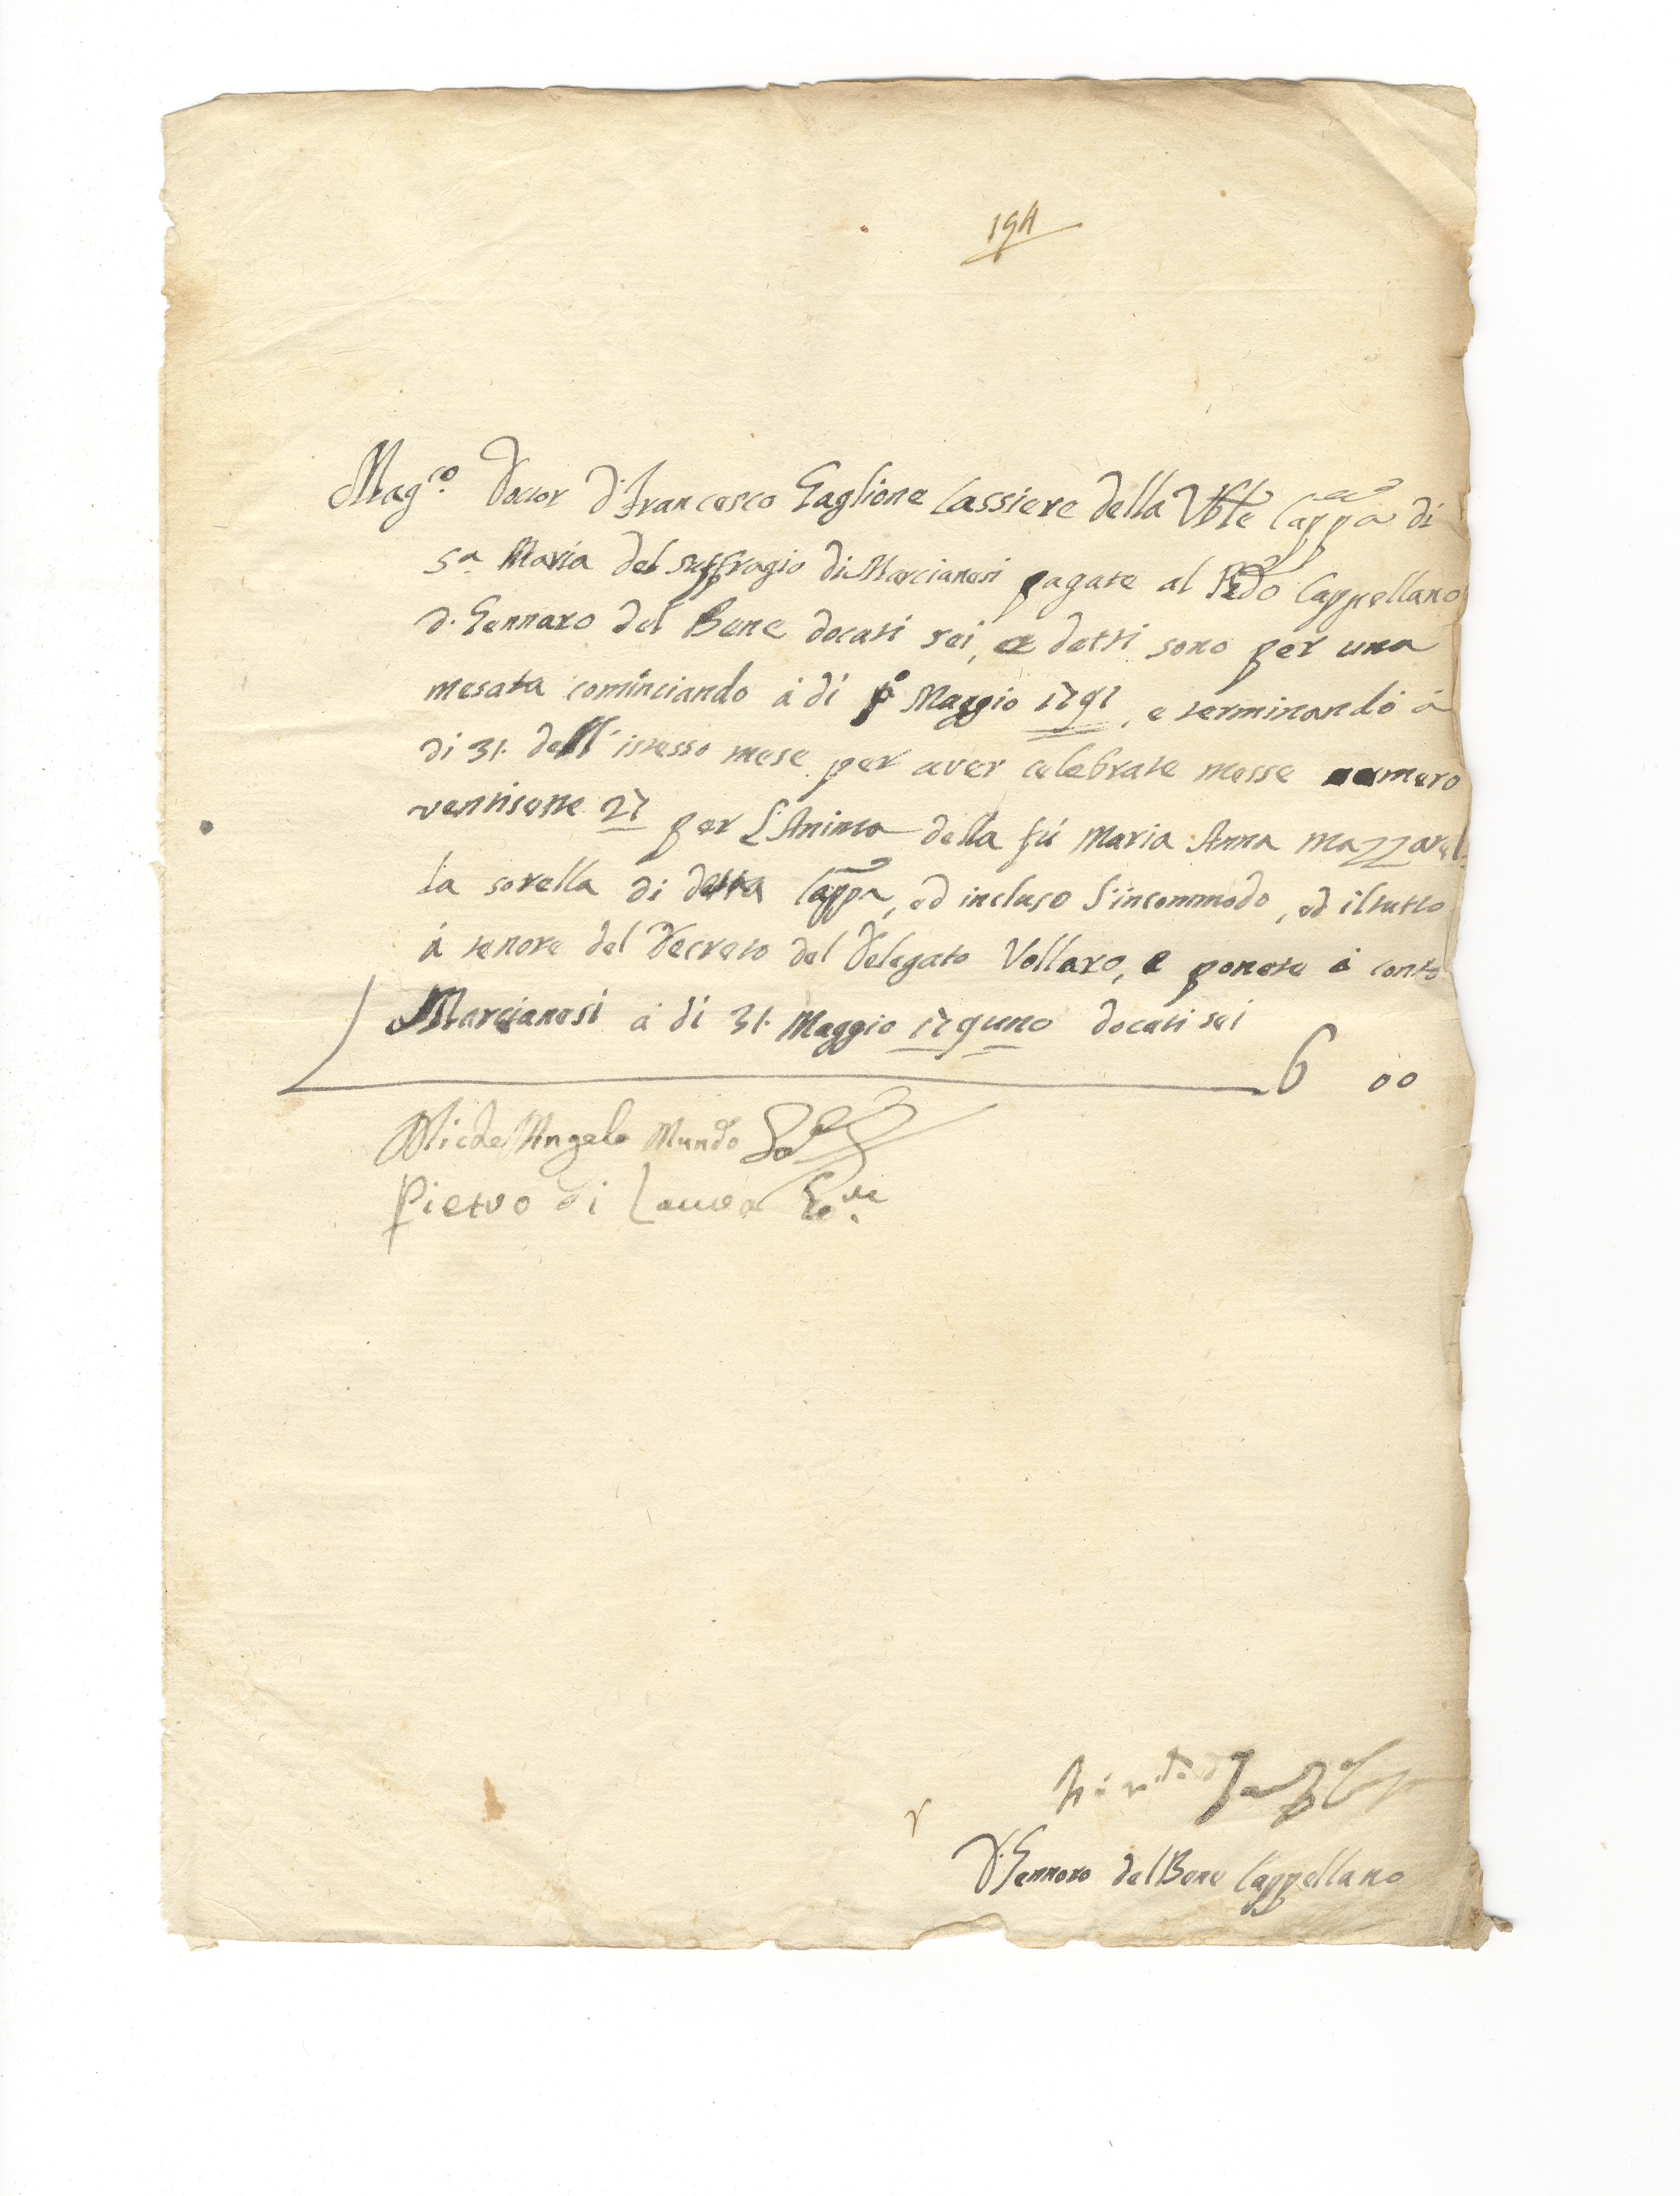 194
Mag.co Dottor D. Francesco Gaglione Cassiere della Vble Cappa di
S.a Maria del suffragio di Marcianesi pagate al Rdo Cappellano
D. Gennaro del Bene docati sei, e detti sono per una
mesata cominciando á di p.o Maggio 1791, e terminando á
di 31. dell'istesso mese per aver celebrate messe numero
ventisette 27 per l'Anima della fú Maria Anna Mazzarel=
la sorella di detta Cappa, ed incluso l'incommodo, ed il tutto
á tenore del Decreto del Delegato Vollaro, e ponete á conto
Marcianesi á di 31. Maggio 179uno docati sei
6 00
Michel'Angelo Mundo
Pietro di Lauro
D. Gennaro del Bene Cappellano